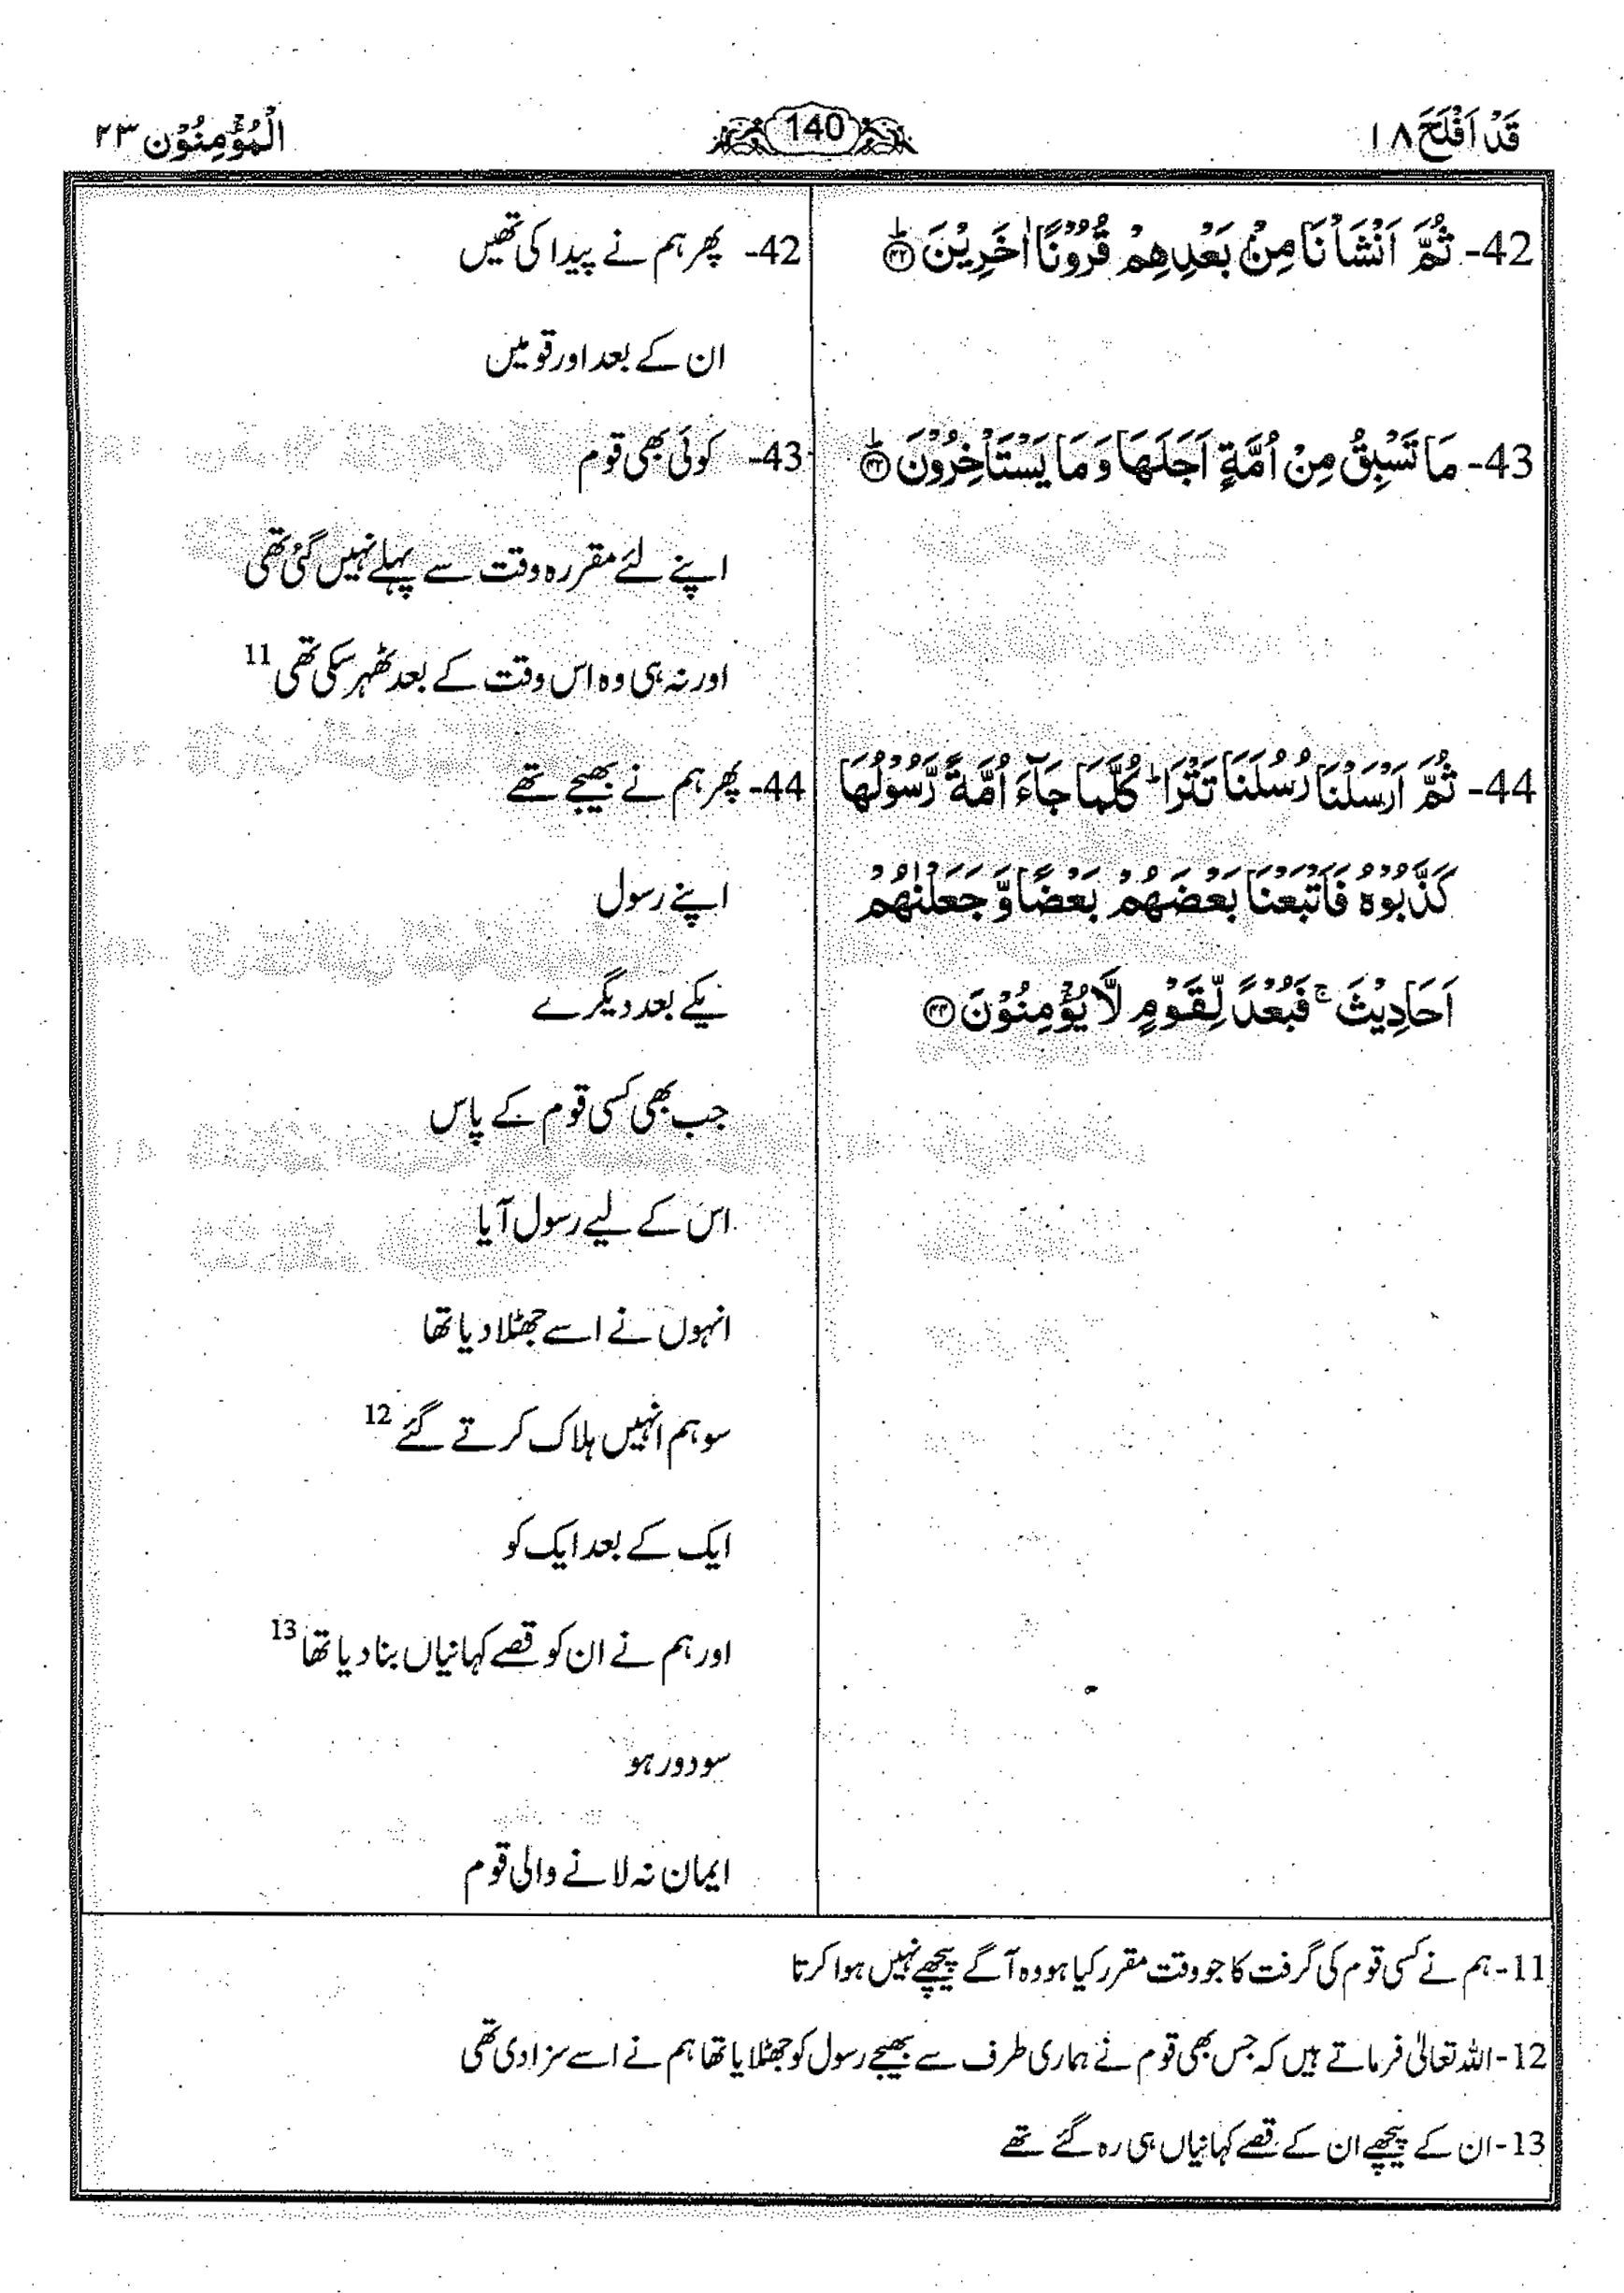 قَدْ اَفْلَحَ ١٨
140
الْمُؤْمِنُوْن ٢٣
42- ثُمَّ اَنْشَاْنَا مِنْۢ بَعْدِهِمْ قُرُوْنًا اٰخَرِيْنَ ؕ ﴿۴۲﴾
43- مَا تَسْبِقُ مِنْ اُمَّةٍ اَجَلَهَا وَ مَا يَسْتَاْخِرُوْنَ ؕ ﴿۴۳﴾
44- ثُمَّ اَرْسَلْنَا رُسُلَنَا تَتْرَا ؕ كُلَّمَا جَآءَ اُمَّةً رَّسُوْلُهَا
كَذَّبُوْهُ فَاَتْبَعْنَا بَعْضَهُمْ بَعْضًا وَّ جَعَلْنٰهُمْ
اَحَادِيْثَ ۚ فَبُعْدًا لِّقَوْمٍ لَّا يُؤْمِنُوْنَ ﴿۴۴﴾
42- پھر ہم نے پیدا کی تھیں
ان کے بعد اور قومیں
43- کوئی بھی قوم
اپنے لئے مقررہ وقت سے پہلے نہیں گئی تھی
اور نہ ہی وہ اس وقت کے بعد ٹھہر سکی تھی 11
44- پھر ہم نے بھیجے تھے
اپنے رسول
یکے بعد دیگرے
جب بھی کسی قوم کے پاس
اس کے لیے رسول آیا
انہوں نے اسے جھٹلا دیا تھا
سو ہم انہیں ہلاک کرتے گئے 12
ایک کے بعد ایک کو
اور ہم نے ان کو قصے کہانیاں بنا دیا تھا 13
سو دور ہو
ایمان نہ لانے والی قوم
11- ہم نے کسی قوم کی گرفت کا جو وقت مقرر کیا ہو وہ آگے پیچھے نہیں ہوا کرتا
12- اللہ تعالیٰ فرماتے ہیں کہ جس بھی قوم نے ہماری طرف سے بھیجے رسول کو جھٹلایا تھا ہم نے اسے سزا دی تھی
13- ان کے پیچھے ان کے قصے کہانیاں ہی رہ گئے تھے